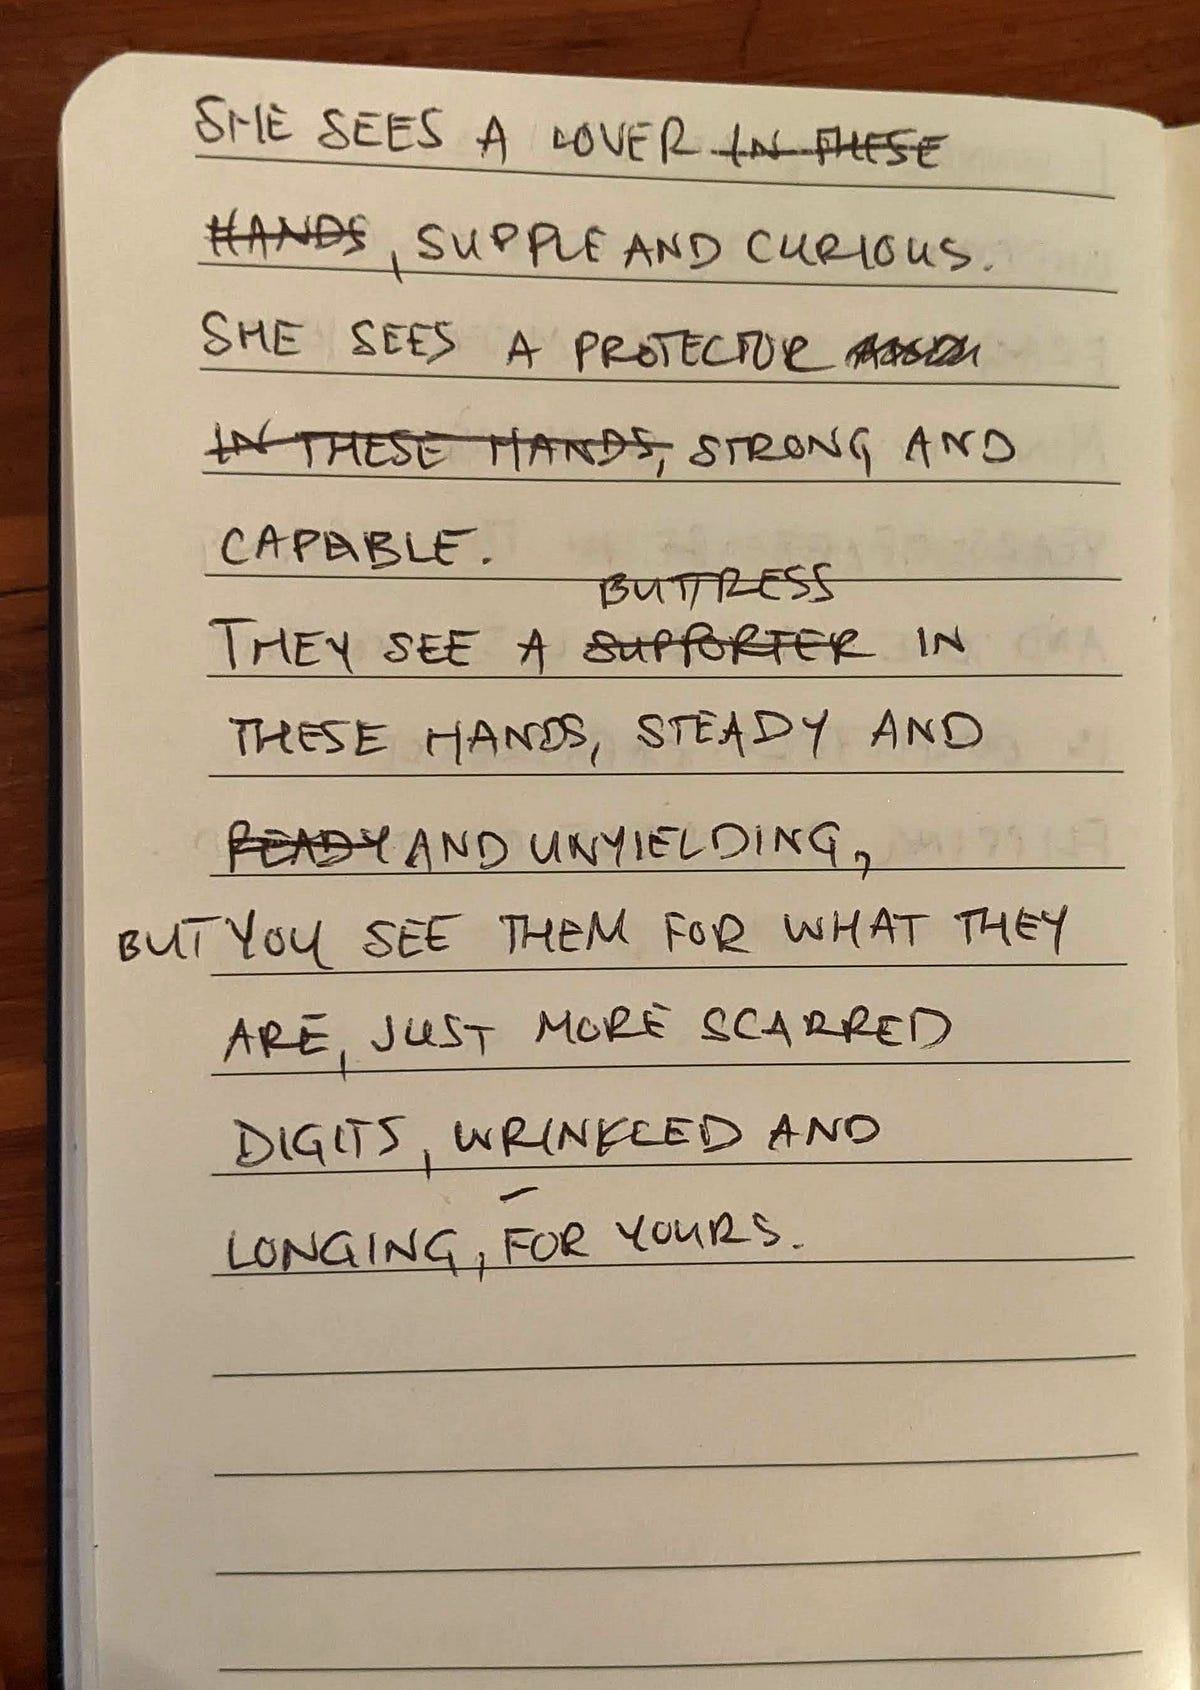 SHE SEES A LOVER IN THESE
HANDS, SUPPLE AND CURIOUS.
SHE SEES A PROTECTOR
IN THESE HANDS, STRONG AND
CAPABLE.
BUTTRESS
THEY SEE A SUPPORTER IN
THESE HANDS, STEADY AND
READY AND UNYIELDING,
BUT YOU SEE THEM FOR WHAT THEY
ARE, JUST MORE SCARRED
DIGITS, WRINKLED AND
LONGING, FOR YOURS.